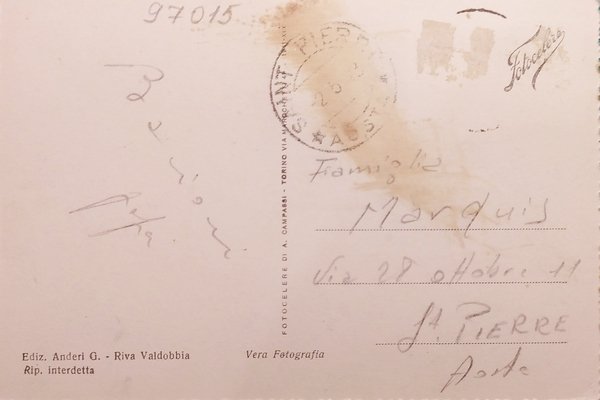 97015
Fotocelere
SAINT PIERRE
AOSTA
Bacioni
Famiglia
Marquis
Via 28 ottobre 11
St. PIERRE
Aosta
FOTOCELERE DI A. CAMPASSI - TORINO VIA
Ediz. Anderi G. - Riva Valdobbia
Rip. interdetta
Vera Fotografia